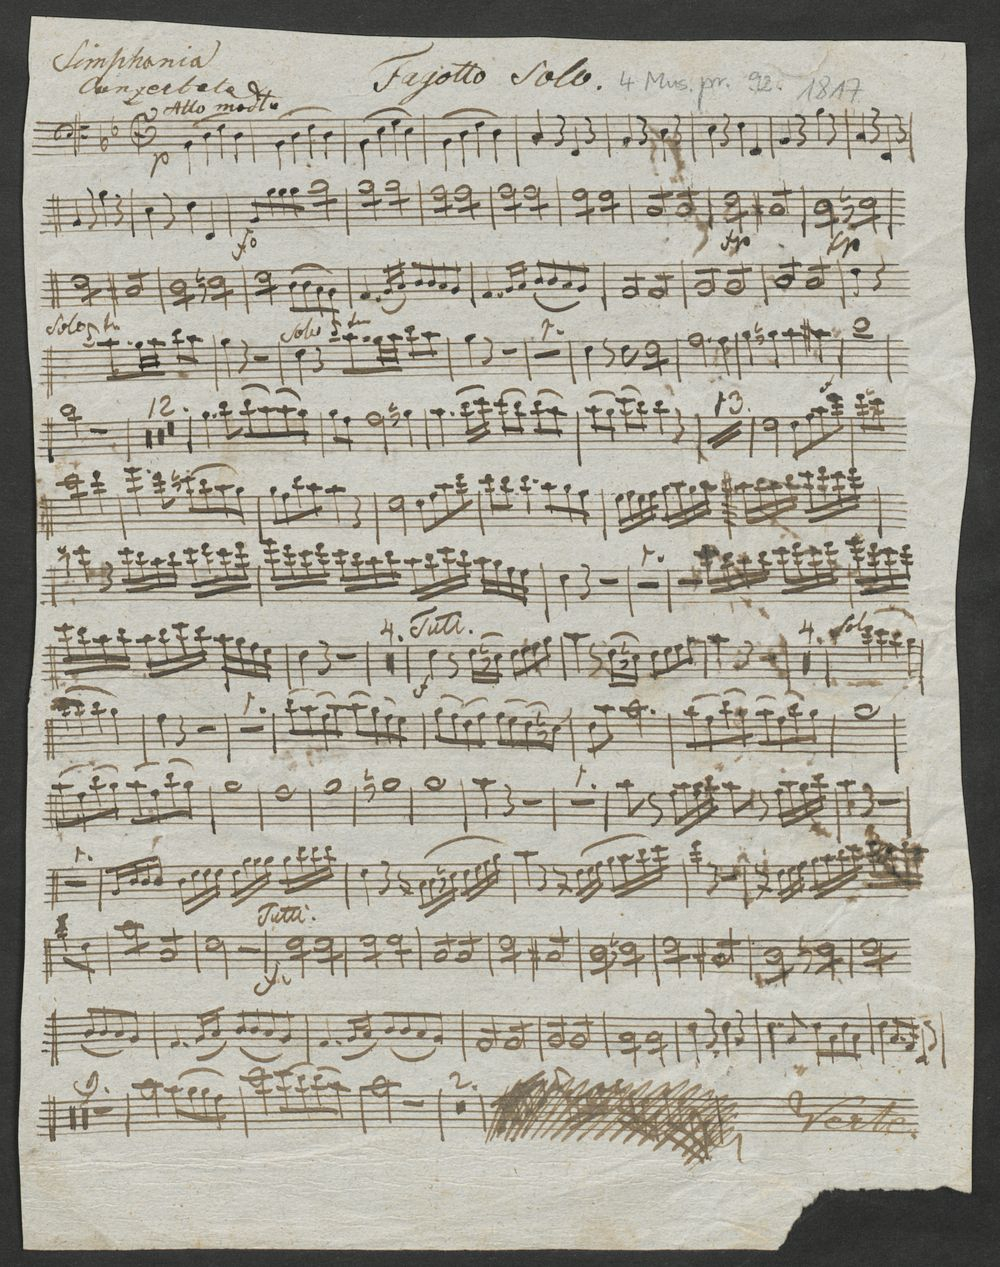 Simphonia
Conzertata
Fagotto Solo. 4 Mus. pr. 92. 1817
Allo modto
p
fo fp fp
Solo Solo 1.
12. 13.
1.
4. Tuti. 4. Solo
f
1.
1.
1.
Tutti.
9. 2. Verte.